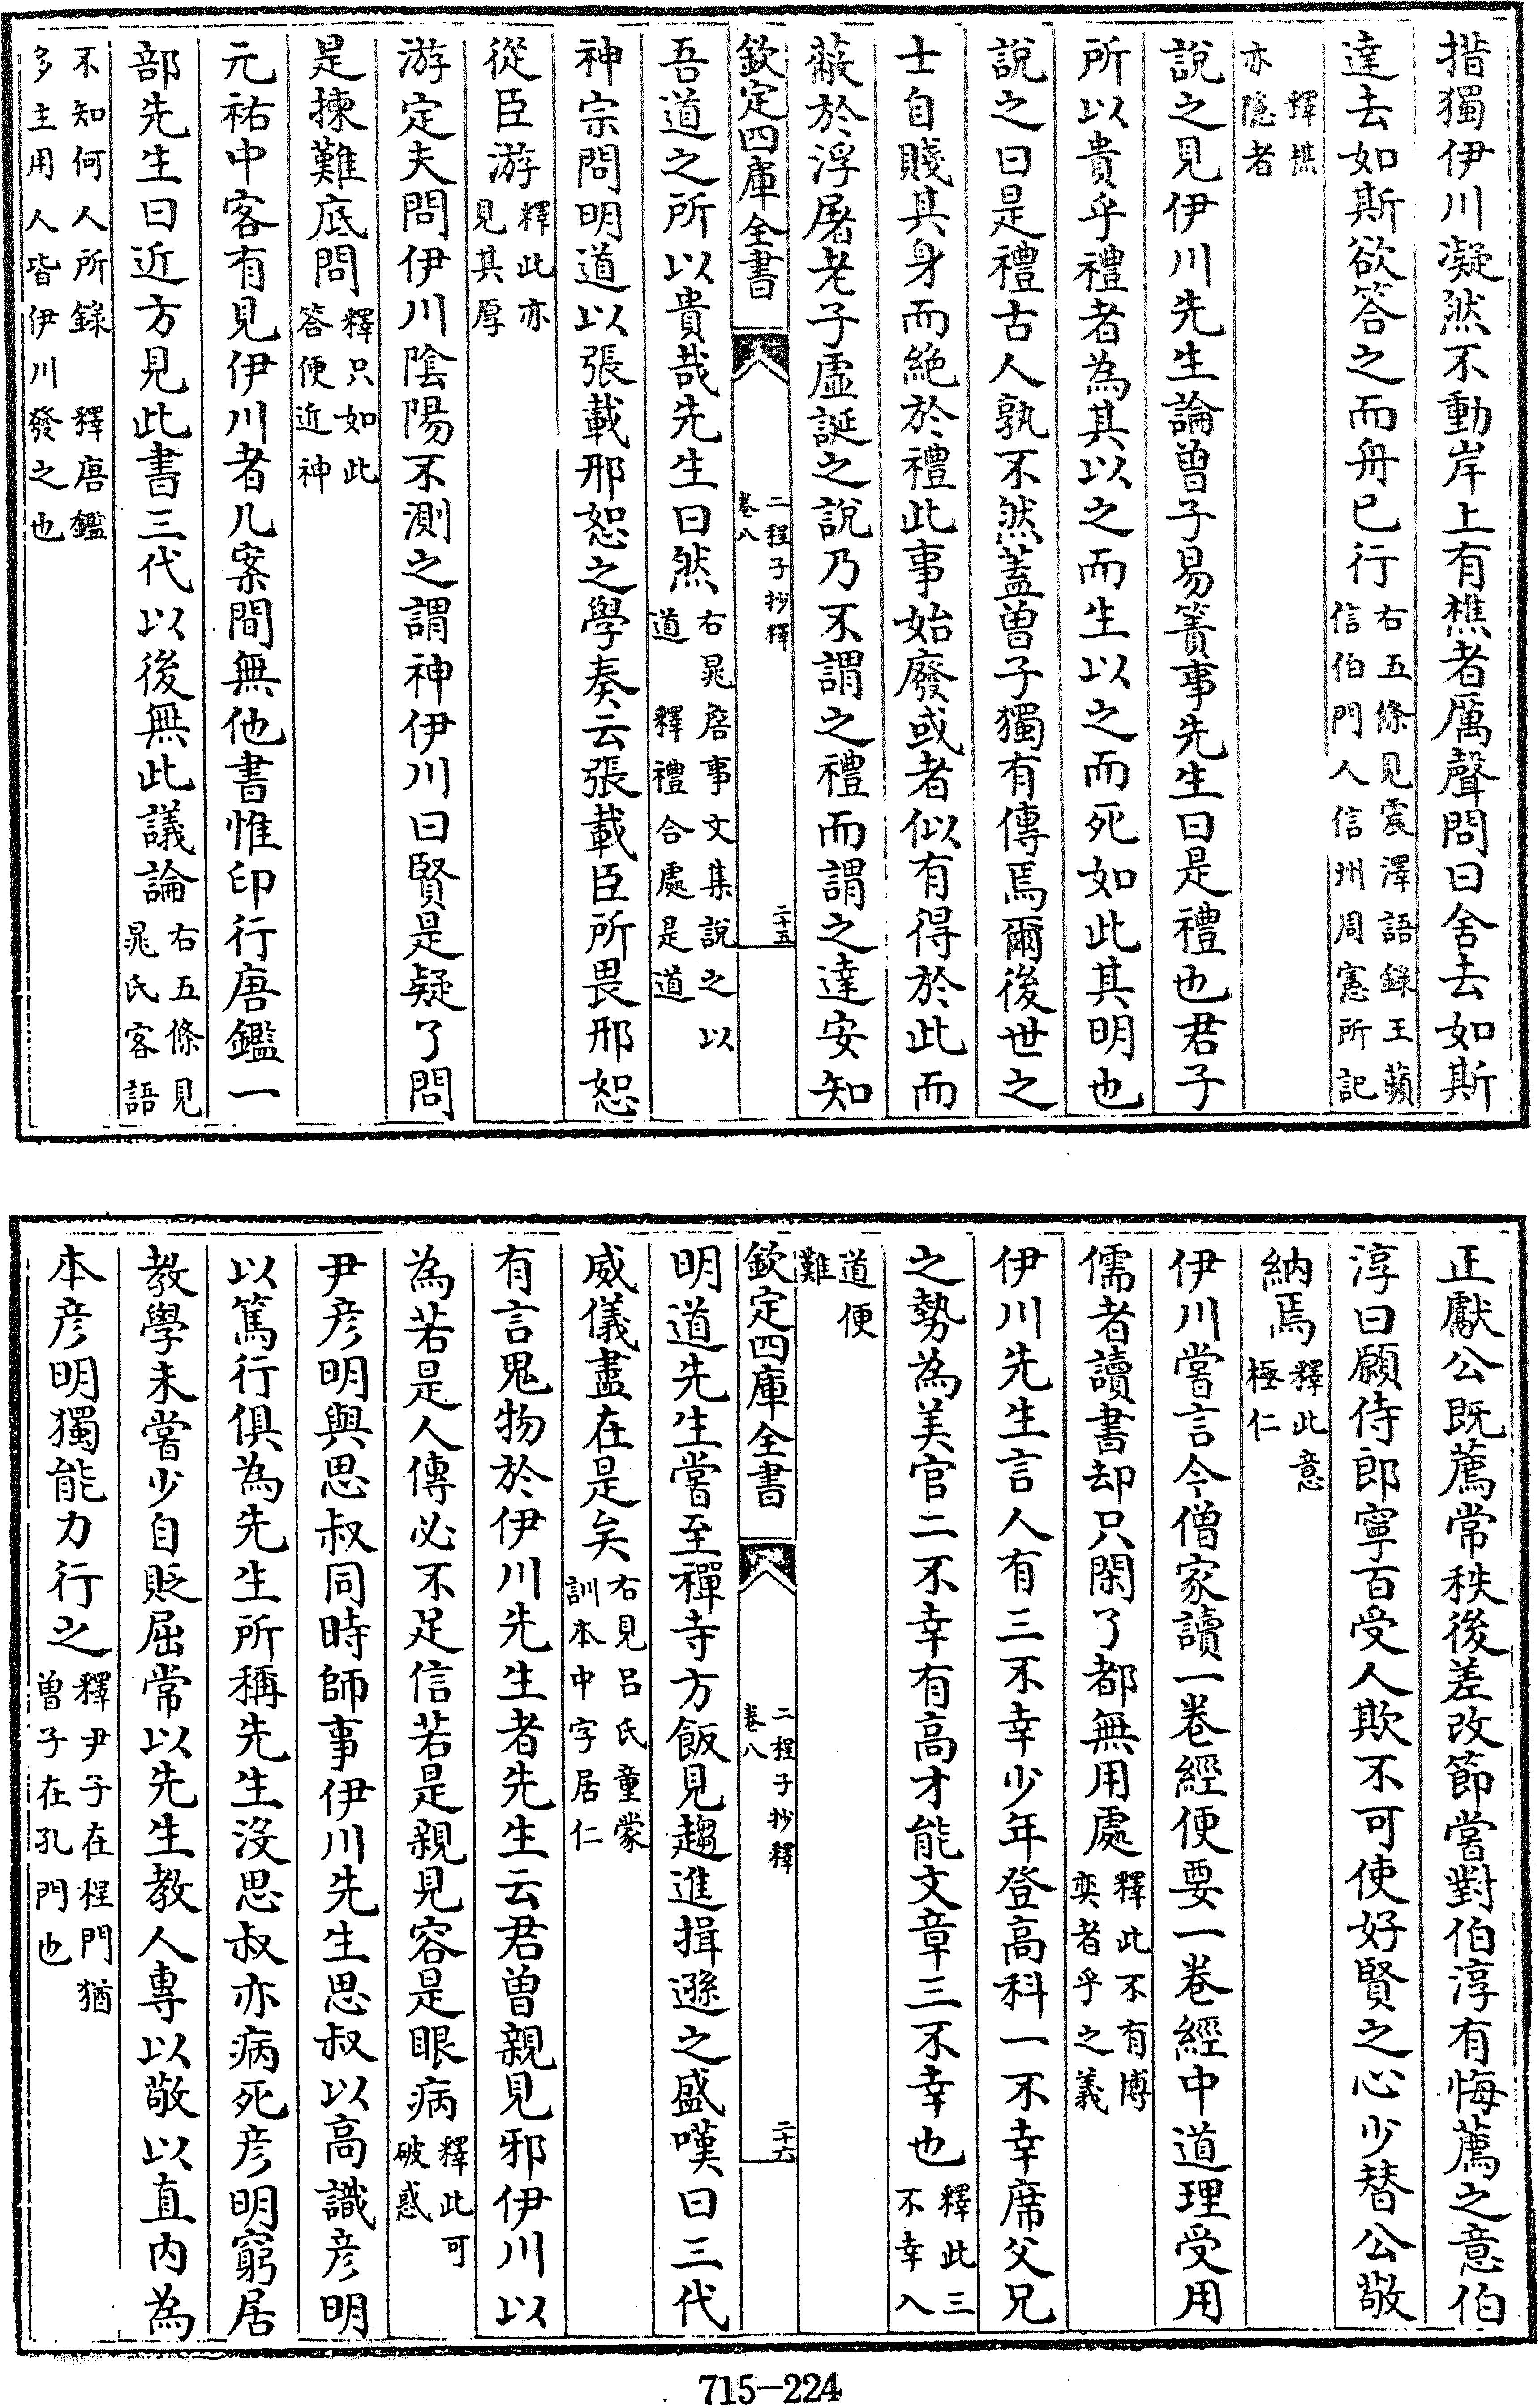 措獨伊川凝然不動岸上有樵者厲聲問曰舍去如斯
達去如斯欲答之而舟已行右五條見震澤語錄王蘋信伯門人信州周憲所記
釋樵亦隱者
說之見伊川先生論曾子易簀事先生曰是禮也君子
所以貴乎禮者為其以之而生以之而死如此其明也
說之曰是禮古人孰不然蓋曾子獨有傳焉爾後世之
士自賤其身而絕於禮此事始廢或者似有得於此而
蔽於浮屠老子虛誕之說乃不謂之禮而謂之達安知
欽定四庫全書 二程子抄釋 卷八 二十五
吾道之所以貴哉先生曰然右晁詹事文集說之以道 釋禮合處是道
神宗問明道以張載邢恕之學奏云張載臣所畏邢恕
從臣游釋此亦見其厚
游定夫問伊川陰陽不測之謂神伊川曰賢是疑了問
是揀難底問釋只如此答便近神
元祐中客有見伊川者几案間無他書惟印行唐鑑一
部先生曰近方見此書三代以後無此議論右五條見晁氏客語
不知何人所錄 釋唐鑑多主用人皆伊川發之也
正獻公既薦常秩後差改節嘗對伯淳有悔薦之意伯
淳曰願侍郎寧百受人欺不可使好賢之心少替公敬
納焉釋此意極仁
伊川嘗言今僧家讀一卷經便要一卷經中道理受用
儒者讀書却只閑了都無用處釋此不有博奕者乎之義
伊川先生言人有三不幸少年登高科一不幸席父兄
之勢為美官二不幸有高才能文章三不幸也釋此三不幸入
道便難
欽定四庫全書 二程子抄釋 卷八 二十六
明道先生嘗至禪寺方飯見趨進揖遜之盛嘆曰三代
威儀盡在是矣右見呂氏童蒙訓本中字居仁
有言鬼物於伊川先生者先生云君曾親見邪伊川以
為若是人傳必不足信若是親見容是眼病釋此可破惑
尹彦明與思叔同時師事伊川先生思叔以高識彦明
以篤行俱為先生所稱先生沒思叔亦病死彦明窮居
教學未嘗少自貶屈常以先生教人專以敬以直內為
本彦明獨能力行之釋尹子在程門猶曾子在孔門也
715-224